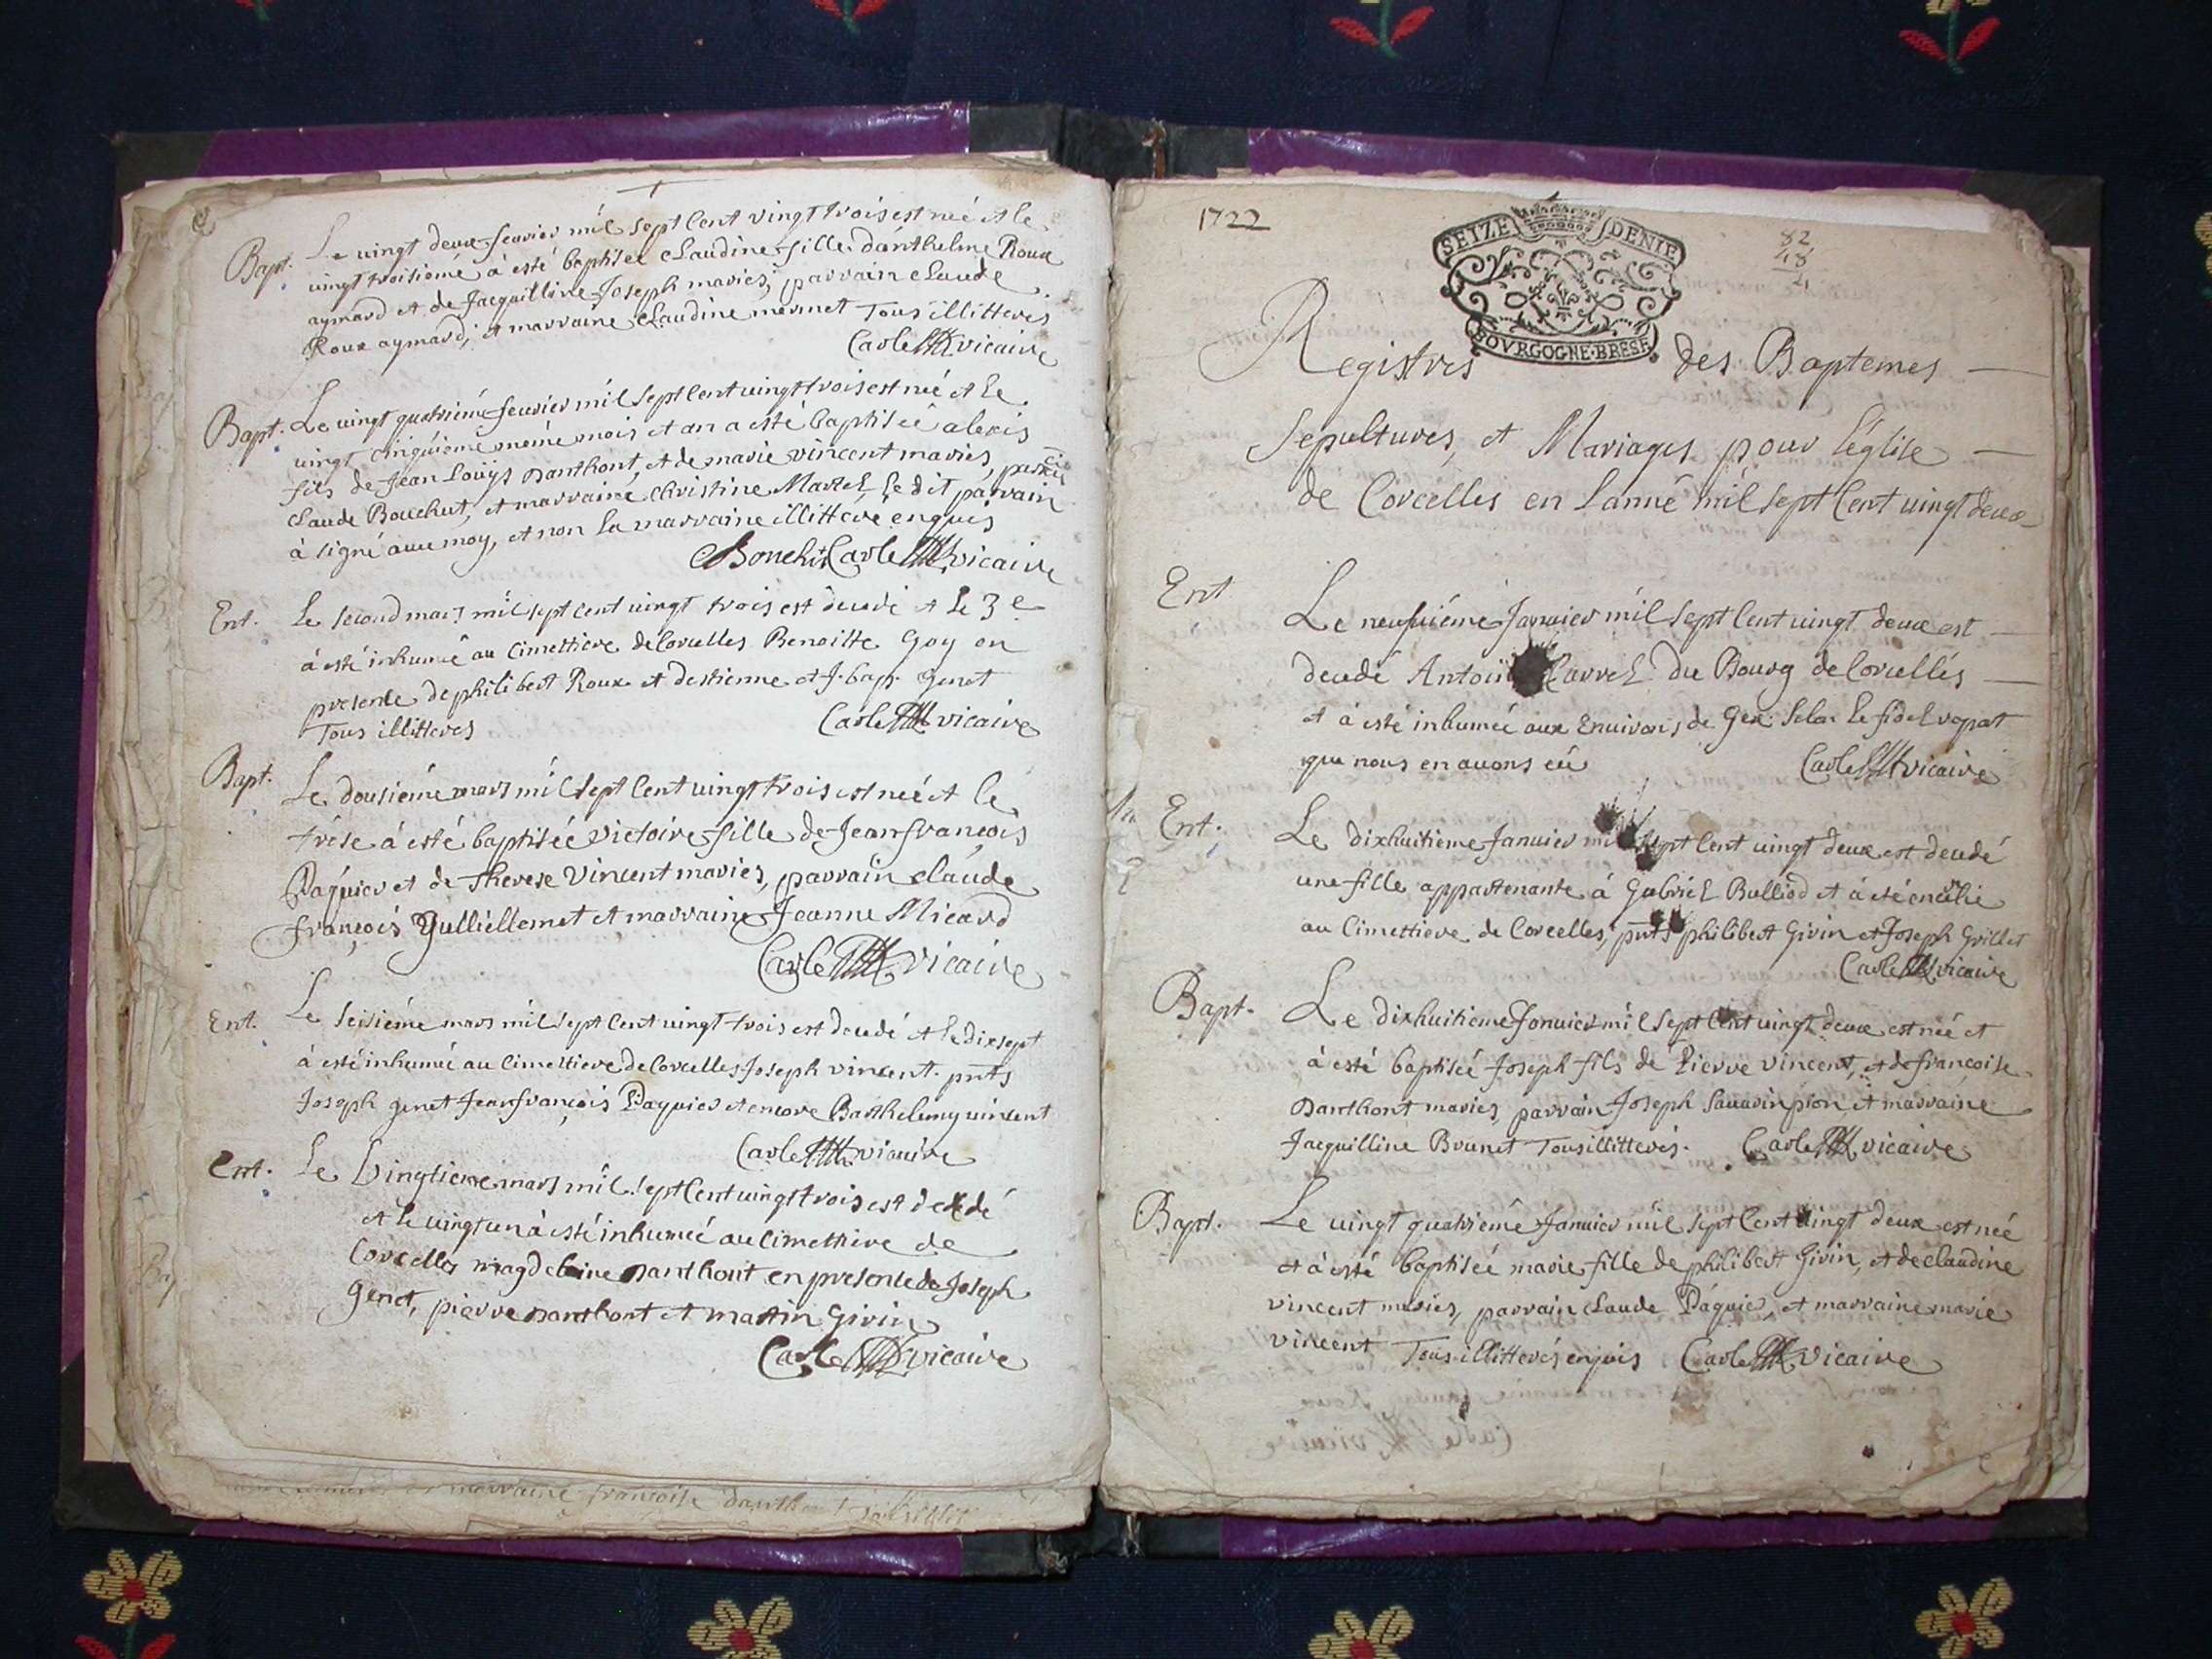 Bapt. Le vingt deux fevrier mil sept Cent vingt trois est née et le
vingt troisiéme à esté baptisée Claudine fille d'anthelme Roux
aymard et de Jacquilline Joseph mariés, parrain Claude
Roux aymard, et marraine Claudine mermet Tous illitteres
Carle vicaire
Bapt. Le vingt quatriéme fevrier mil sept Cent vingt trois est née et le
vingt cinquiéme méme mois et an a esté baptisée alexis
fils de Jean Loüys Danthont, et de marie vincent mariés,
Claude Bouchut, et marraine Christine Martel le dit parrain
à signé avec moy, et non la marraine illittere enquis
Carle vicaire
Ent. Le second mars mil sept cent vingt trois est decedé et le 3e
à esté inhumée au Cimettiere de Corcelles Benoitte Goy en
presence de philibert Roux et d'estienne et J. bap. Genet
Tous illitteres Carle vicaire
Bapt. Le dousiéme mars mil sept Cent vingt trois est née et le
trése à esté baptisée victoire fille de Jean françois
Páquier et de Therese Vincent mariés, parrain claude
françois Gulliellemet et marraine Jeanne Micard
Carle vicaire
Ent. Le seisiéme mars mil sept Cent vingt trois est decedé et le dixsept
à esté inhumé au Cimettiere de Corcelles Joseph vincent. pnts
Joseph genet Jean françois Paquier et encore Barthelemy vincent
Carle vicaire
Ent. Le Vingtieme mars mil sept Cent vingt trois est decedé
et le vingt un à esté inhumeé au Cimettiere de
Corcelles magdeleine Danthont en presence de Joseph
Genet, pierre Danthont et martin Girin
Carle vicaire
marraine françoise danthont
1722
SEIZE DENIE
BOVRGOGNE·BRESE
82
18
Registres des Baptemes
Sepultures, et Mariages pour l'église
de Corcelles en Lanné mil sept Cent vingt deux
Ent Le neufuiéme Janvier mil sept Cent vingt deux est
decedé Carrel du Bourg de Corcelles
et à esté inhumée aux Environs de Gex Selon le fidel raport
que nous en avons eü Carle vicaire
Ent. Le dixhuitieme Janvier mil sept Cent vingt deux est decedé
une fille appartenante à Gabriel Bulliod et à eté
au Cimettiere de Corcelles, pnts philibert Girin et Joseph Grillet
Carle vicaire
Bapt. Le dixhuitieme Janvier mil sept Cent vingt deux est née et
à esté baptiseé Joseph fils de Pierre vincent, et de françoise
Danthont mariés, parrain Joseph Savarin pion, et marraine
Jacquilline Brunet Tous illitterés. Carle vicaire
Bapt. Le vingt quatriéme Janvier mil sept Cent vingt deux est née
et à esté baptisée marie fille de philibert Girin, et de claudine
vincent mariés, parrain Claude Páquier, et marraine marie
vincent Tous illitterés enquis Carle vicaire